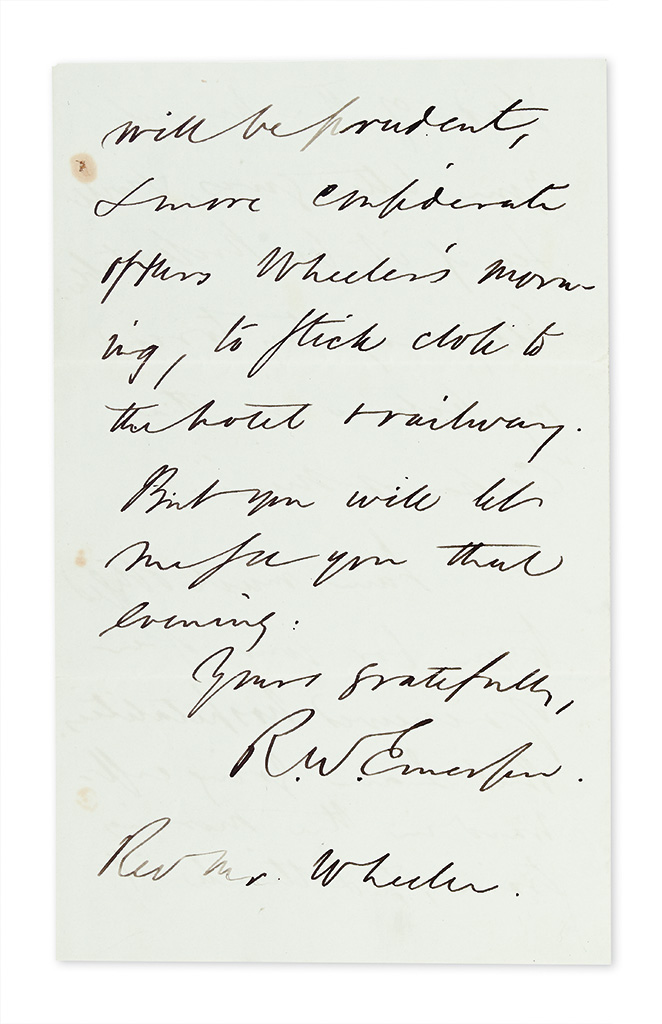 will be prudent,
& more considerate
of Mrs Wheeler's morn-
ing, to stick close to
the hotel & railway.
But you will let
me see you that
evening:
Yours gratefully,
R. W. Emerson.
Rev Mr. Wheeler.